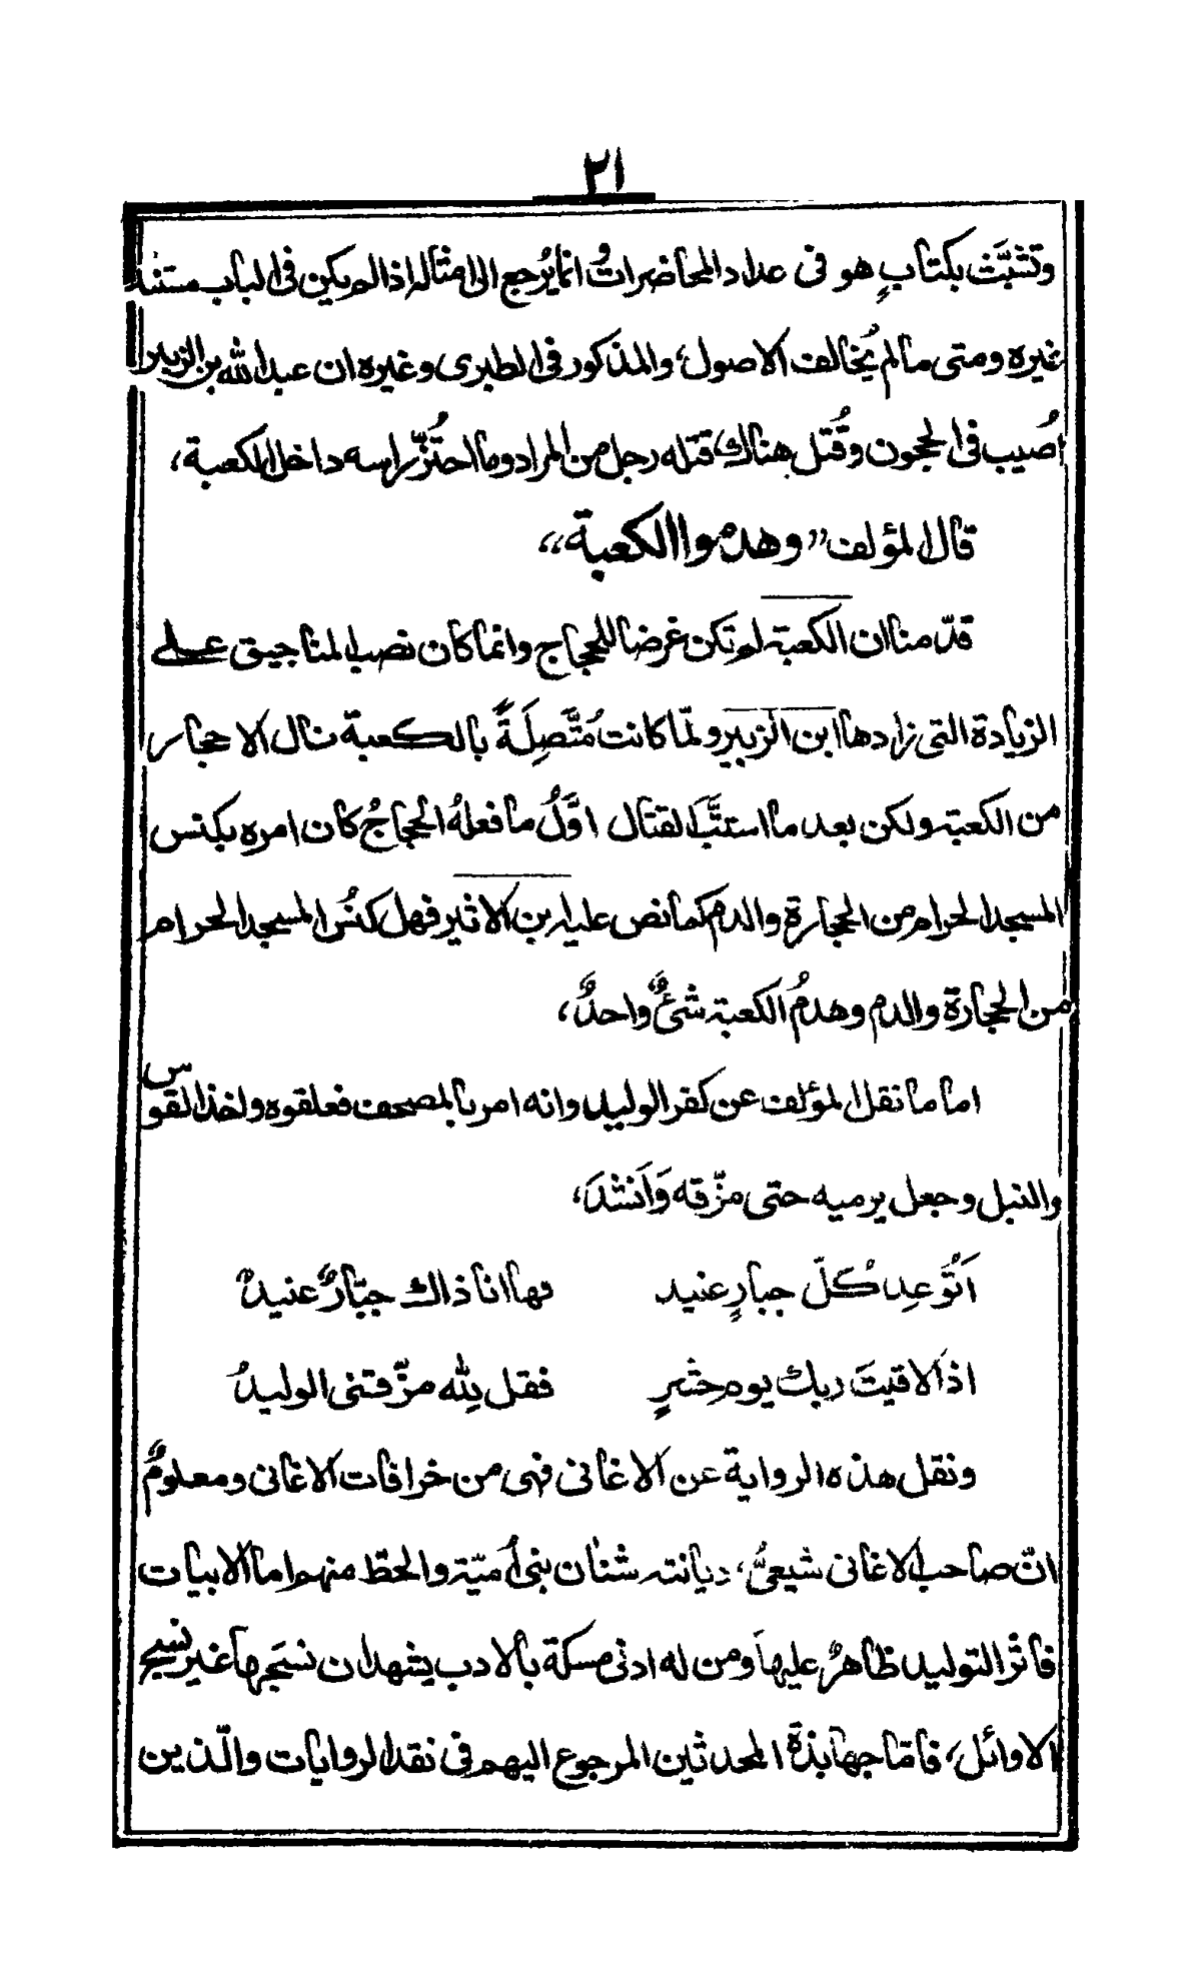 ٢١
وتشبَّث بكتابٍ هو فى عداد المحاضرات وانما يُرجع الى امثاله اذا لم يكن فى الباب مستند
غيره ومتى ما لم يُخالف الاصول، والمذكور فى الطبرى وغيره ان عبد الله بن الزبير
اُصيب فى الحجون وقُتل هناك، قتله رجل من المراد وما احتُزّ راسه داخل الكعبة،
قال المؤلف "وهدموا الكعبة"
قدّمنا ان الكعبة لم تكن غرضا للحجاج وانما كان نصب المناجيق على
الزيادة التى زادها ابن الزبير ولمّا كانت مُتَّصِلَةً بالكعبة نال الاحجار
من الكعبة ولكن بعد ما استتبَّ القتال اوَّلُ ما فعلهُ الحجاجُ كان امره بكنس
المسجد الحرام من الحجارة والدم كما نص عليه ابن الاثير فهل كنسُ المسجد الحرام
من الحجارة والدم وهدمُ الكعبة شئٌ واحدٌ،
اما ما نقل المؤلف عن كفر الوليد وانه امر بالمصحف فعلقوه واخذ القوس
والنبل وجعل يرميه حتى مزّقه وَاَنشدَ،
اَتُوعِد كُلّ جبارٍ عنيد فها انا ذاك جبّارٌ عنيدٌ
اذا لاقيتَ ربك يوم حشرٍ فقل لِلّٰه مزّقنى الوليدُ
ونقل هذه الرواية عن الاغانى فهى من خرافات الاغانى ومعلومٌ
انّ صاحب الاغانى شيعىٌّ، ديانته شنان بنى اُميّة والحظ منهم اما الابيات
فاثر التوليد ظاهرٌ عليها ومن له ادنى مسكة بالادب يشهد ان نسَجها غير نسج
الاوائل، فاما جهابذة المحدثين المرجوع اليهم فى نقد الروايات والّذين